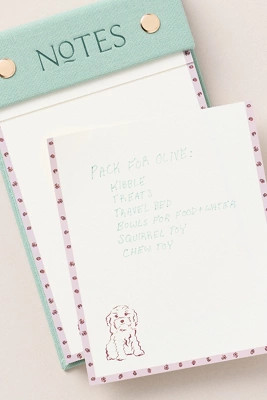 NOTES
PACK FOR OLIVE:
KIBBLE
TREATS
TRAVEL BED
BOWLS FOR FOOD + WATER
SQUIRREL TOY
CHEW TOY